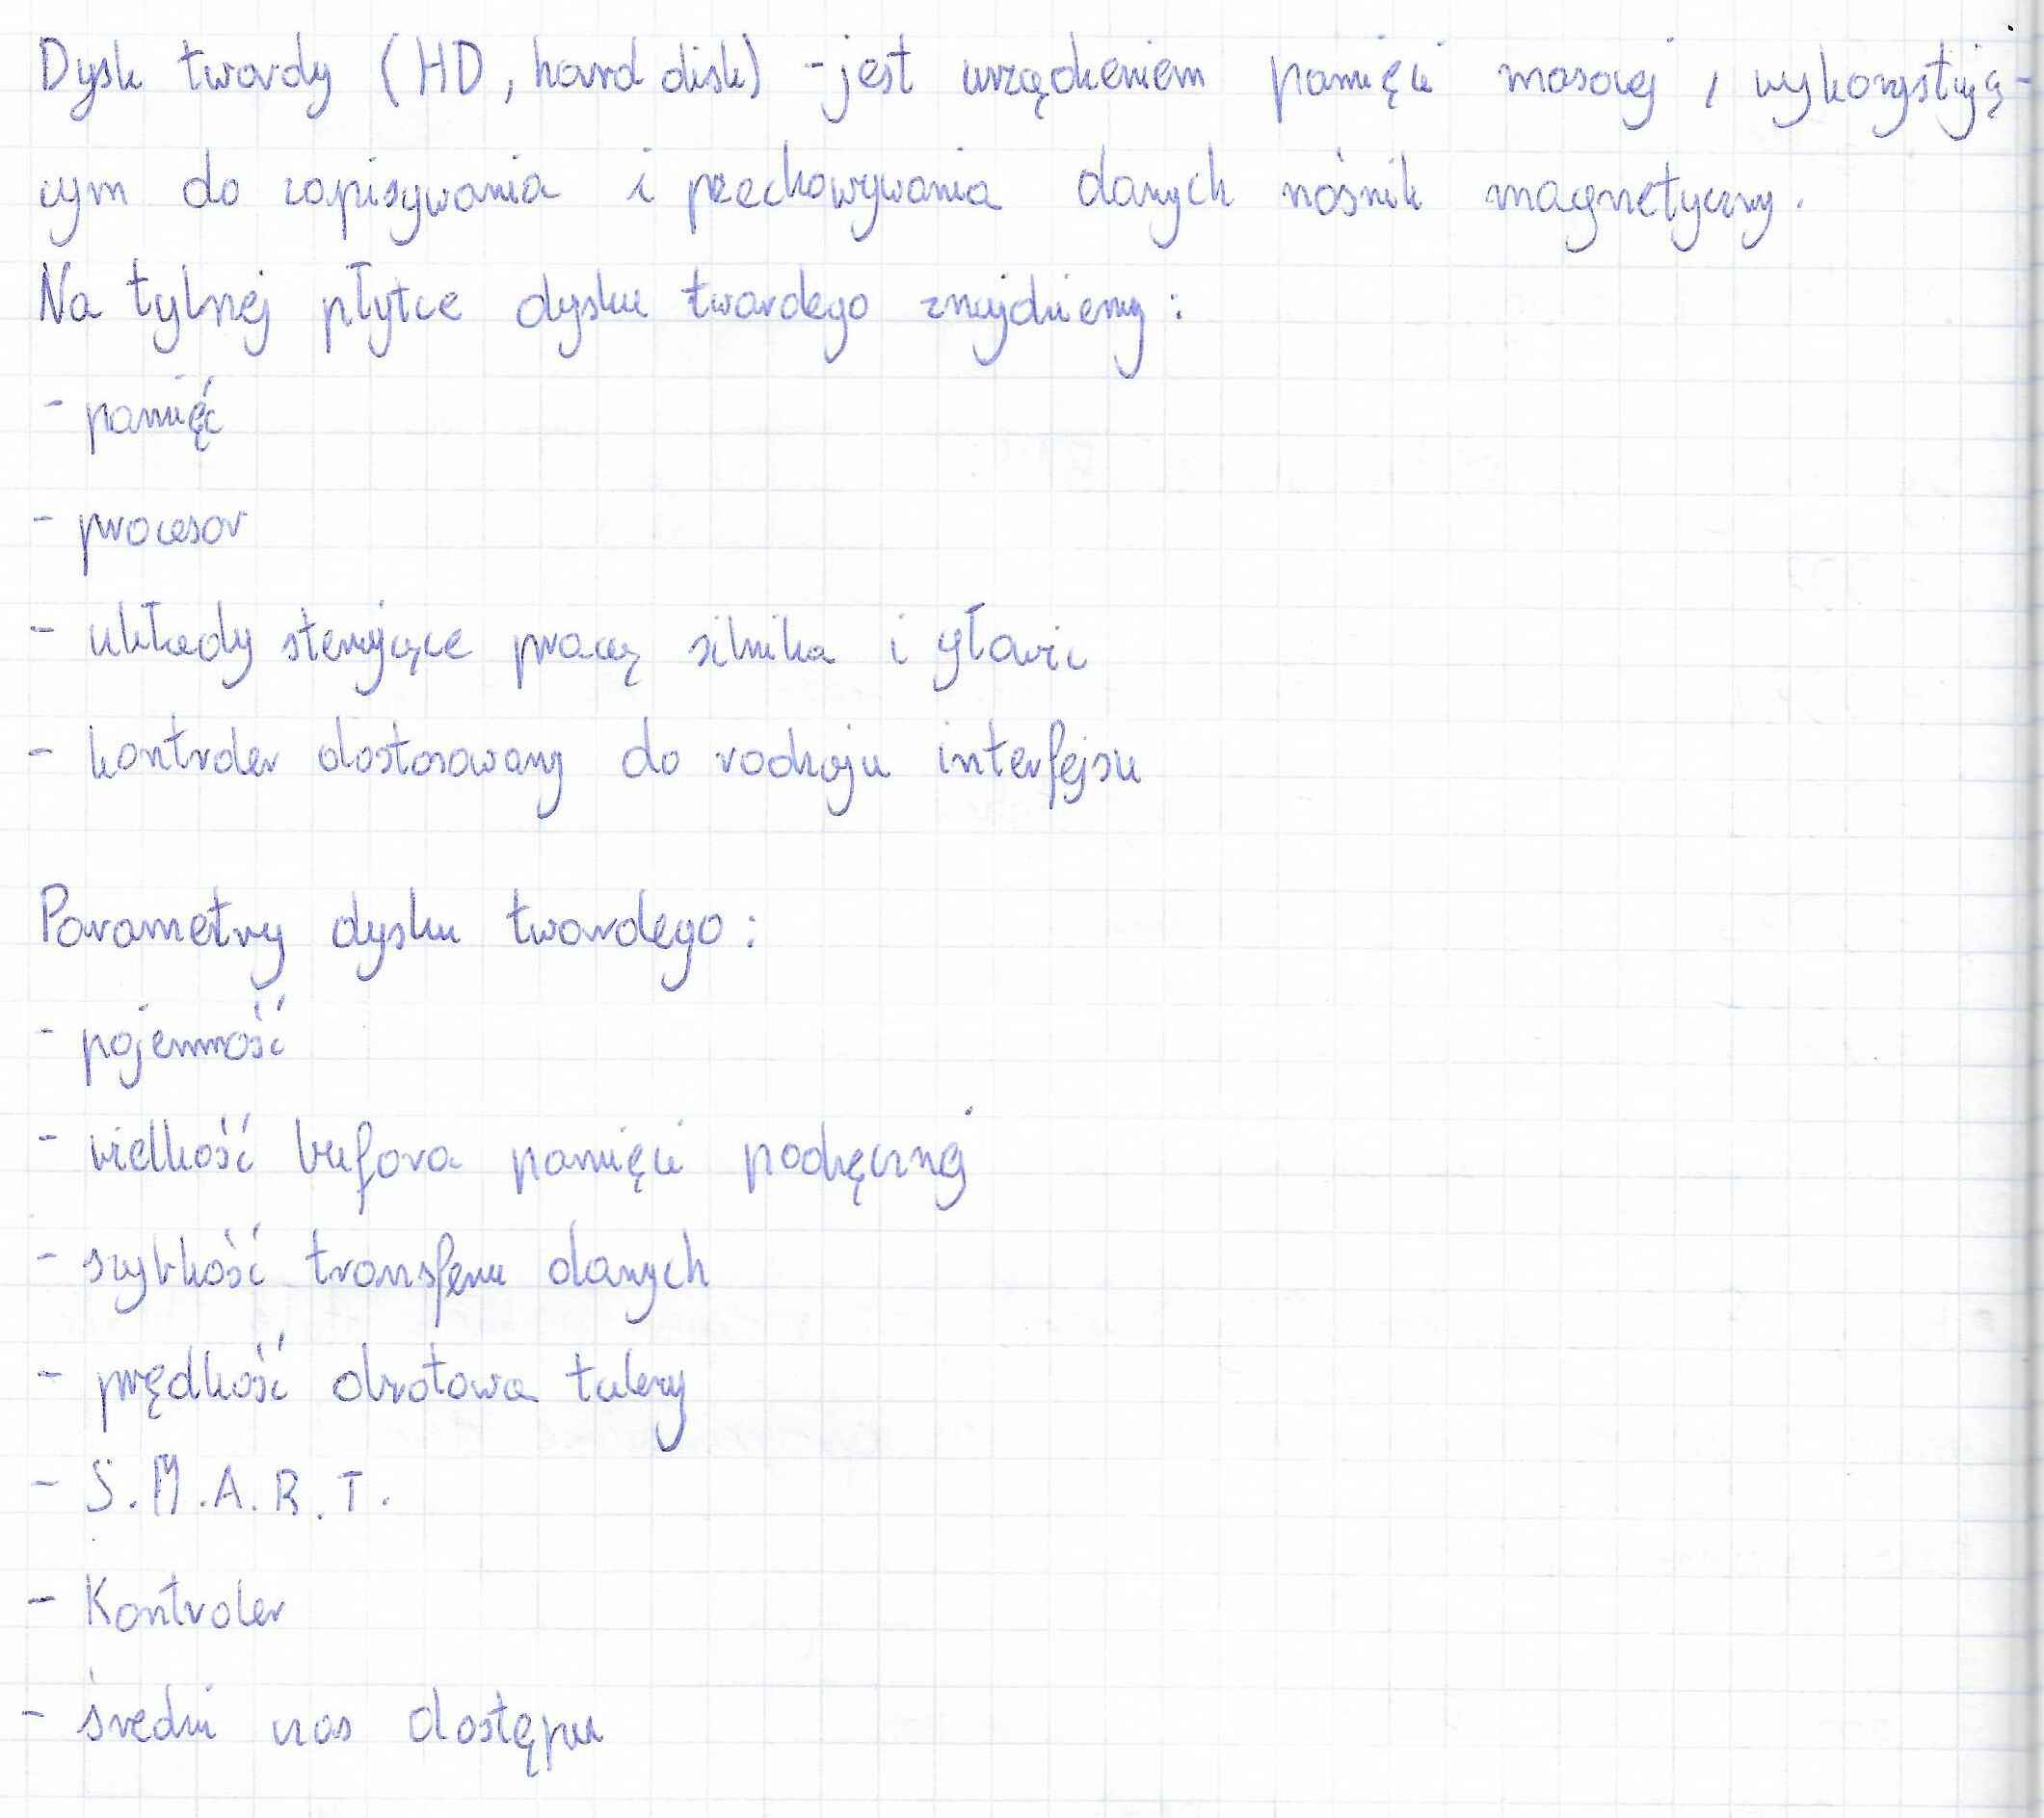 Dysk twardy (HD, hard disk) - jest urządzeniem pamięci masowej, wykorzystują-
cym do zapisywania i przechowywania danych nośnik magnetyczny.
Na tylnej płytce dysku twardego znajdziemy:
- pamięć
- procesor
- układy sterujące pracą silnika i głowic
- kontroler dostosowany do rodzaju interfejsu
Parametry dysku twardego:
- pojemność
- wielkość bufora pamięci podręcznej
- szybkość transferu danych
- prędkość obrotowa talerzy
- S.M.A.R.T.
- Kontroler
- średni czas dostępu